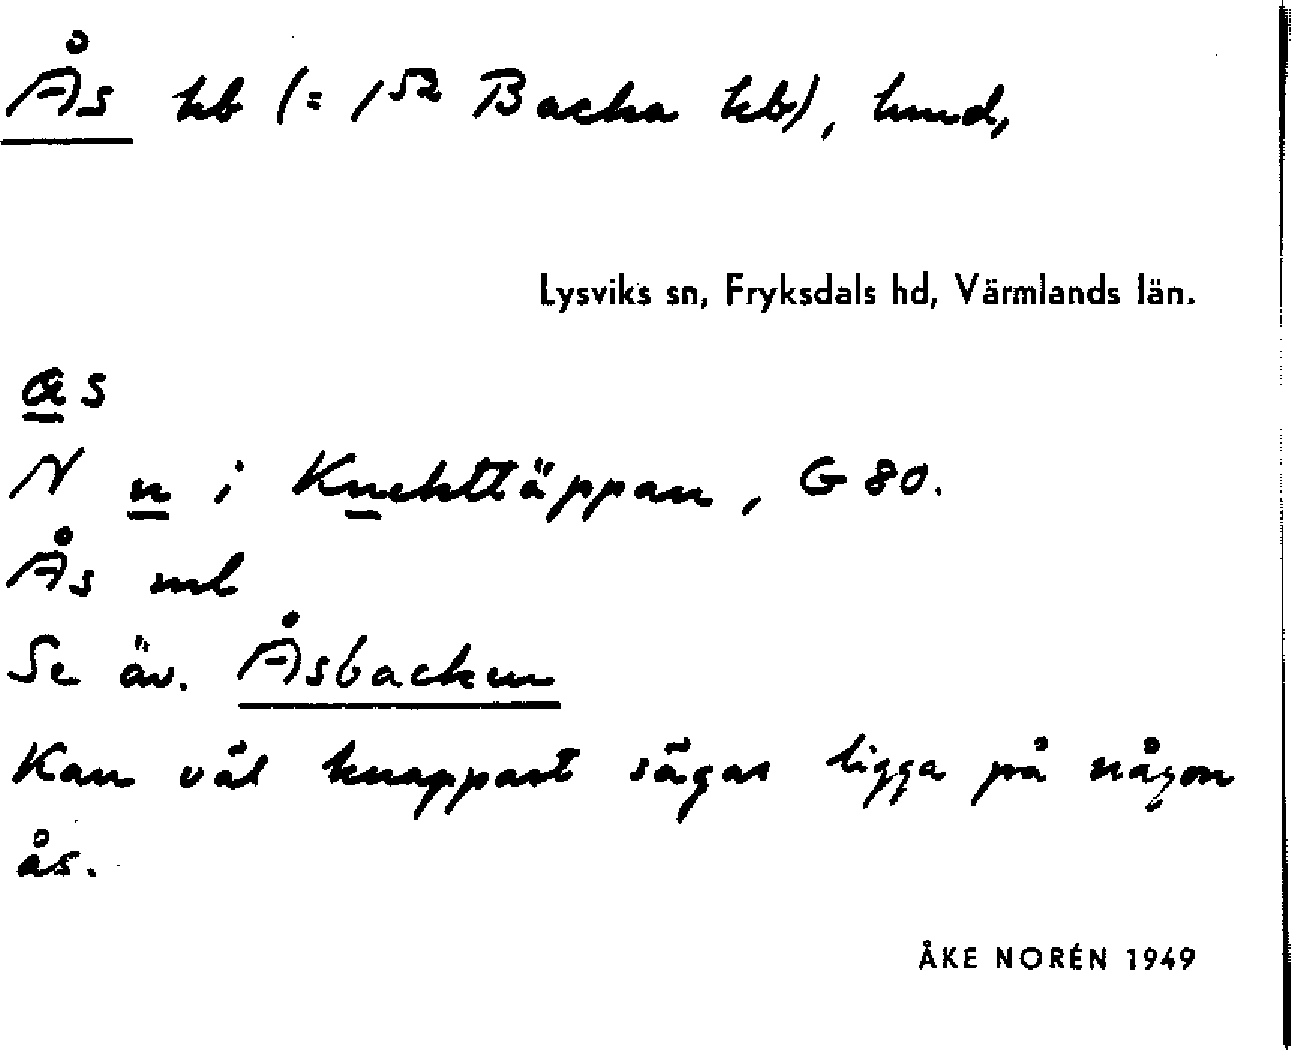 Ås hb (= 1 52 Backa hb), hmd,
Lysviks sn, Fryksdals hd, Värmlands län.
as
N n i Knekttäppan, G 80.
Ås ml
Se äv. Åsbacken
Kan väl knappast sägas ligga på någon
ås.
ÅKE NORÉN 1949